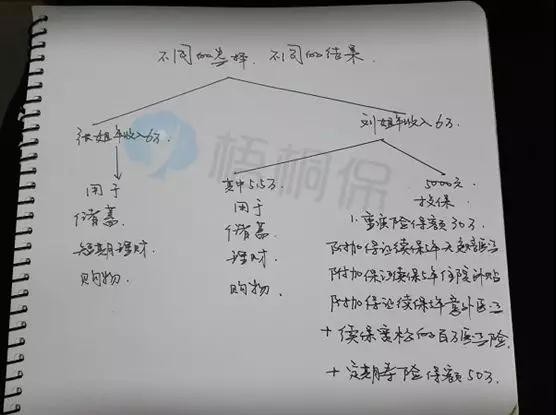 不同的选择. 不同的结果.
张姐年收入6万
刘姐年收入6万.
用于
储蓄
短期理财
购物.
其中5.5万
用于
储蓄
理财
购物.
5000元
投保
1. 重疾险保额30万
附加保证续保5年
附加保证续保5年住院补贴
附加保证续保5年意外医疗
+ 续保宽松的百万医疗险.
+ 定期寿险保额50万.
梧桐保